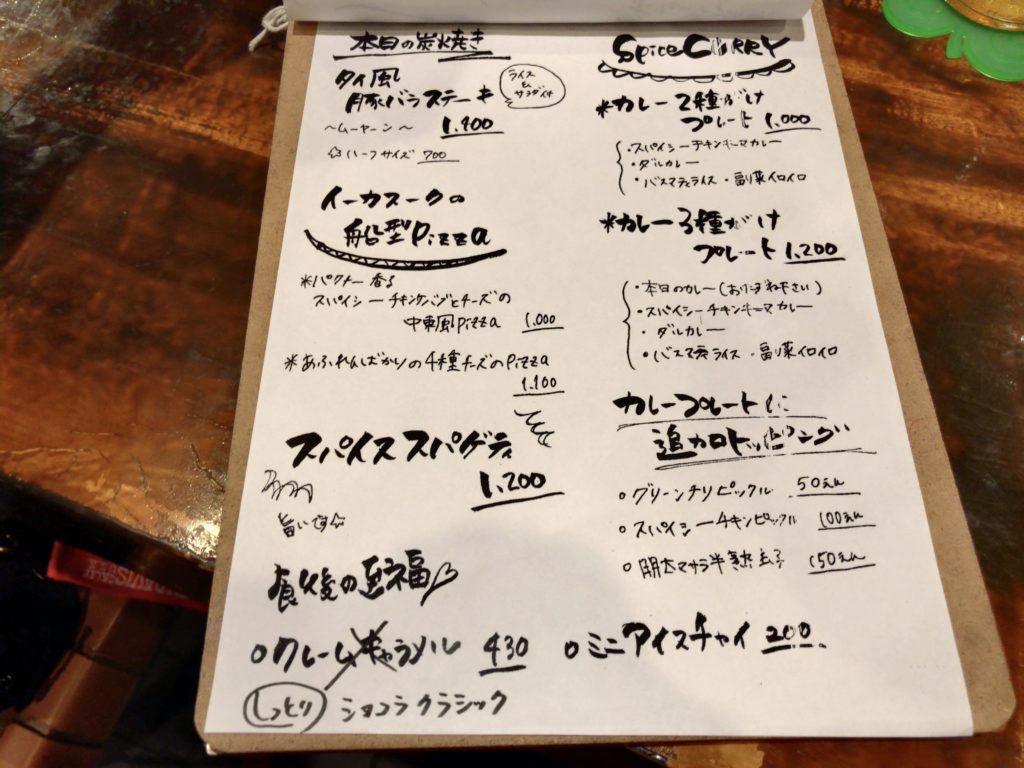 本日の炭火焼き
タイ風
豚バラステーキ
ライス
&
サラダ付
〜ムーヤーン〜 1.100
☆ハーフサイズ 700
イーカスークの
船型Pizza
*パクチー香る
スパイシーチキンケバブとチーズの
中東風Pizza 1.000
*あふれんばかりの4種チーズのPizza
1.100
スパイススパゲティ
1.200
旨いです☆
食後の至福♡
○クレームキャラメル 430
しっとり ショコラクラシック
Spice CURRY
*カレー2種がけ
プレート 1.000
・スパイシーチキンキーマカレー
・ダルカレー
・バスマティライス・副菜イロイロ
*カレー3種がけ
プレート 1.200
・本日のカレー(おたずね下さい)
・スパイシーチキンキーマカレー
・ダルカレー
・バスマティライス・副菜イロイロ
カレープレートに
追加トッピング
○グリーンチリピックル 50えん
○スパイシーチキンピックル 100えん
○明太マサラ半熟玉子 150えん
○ミニアイスチャイ 200